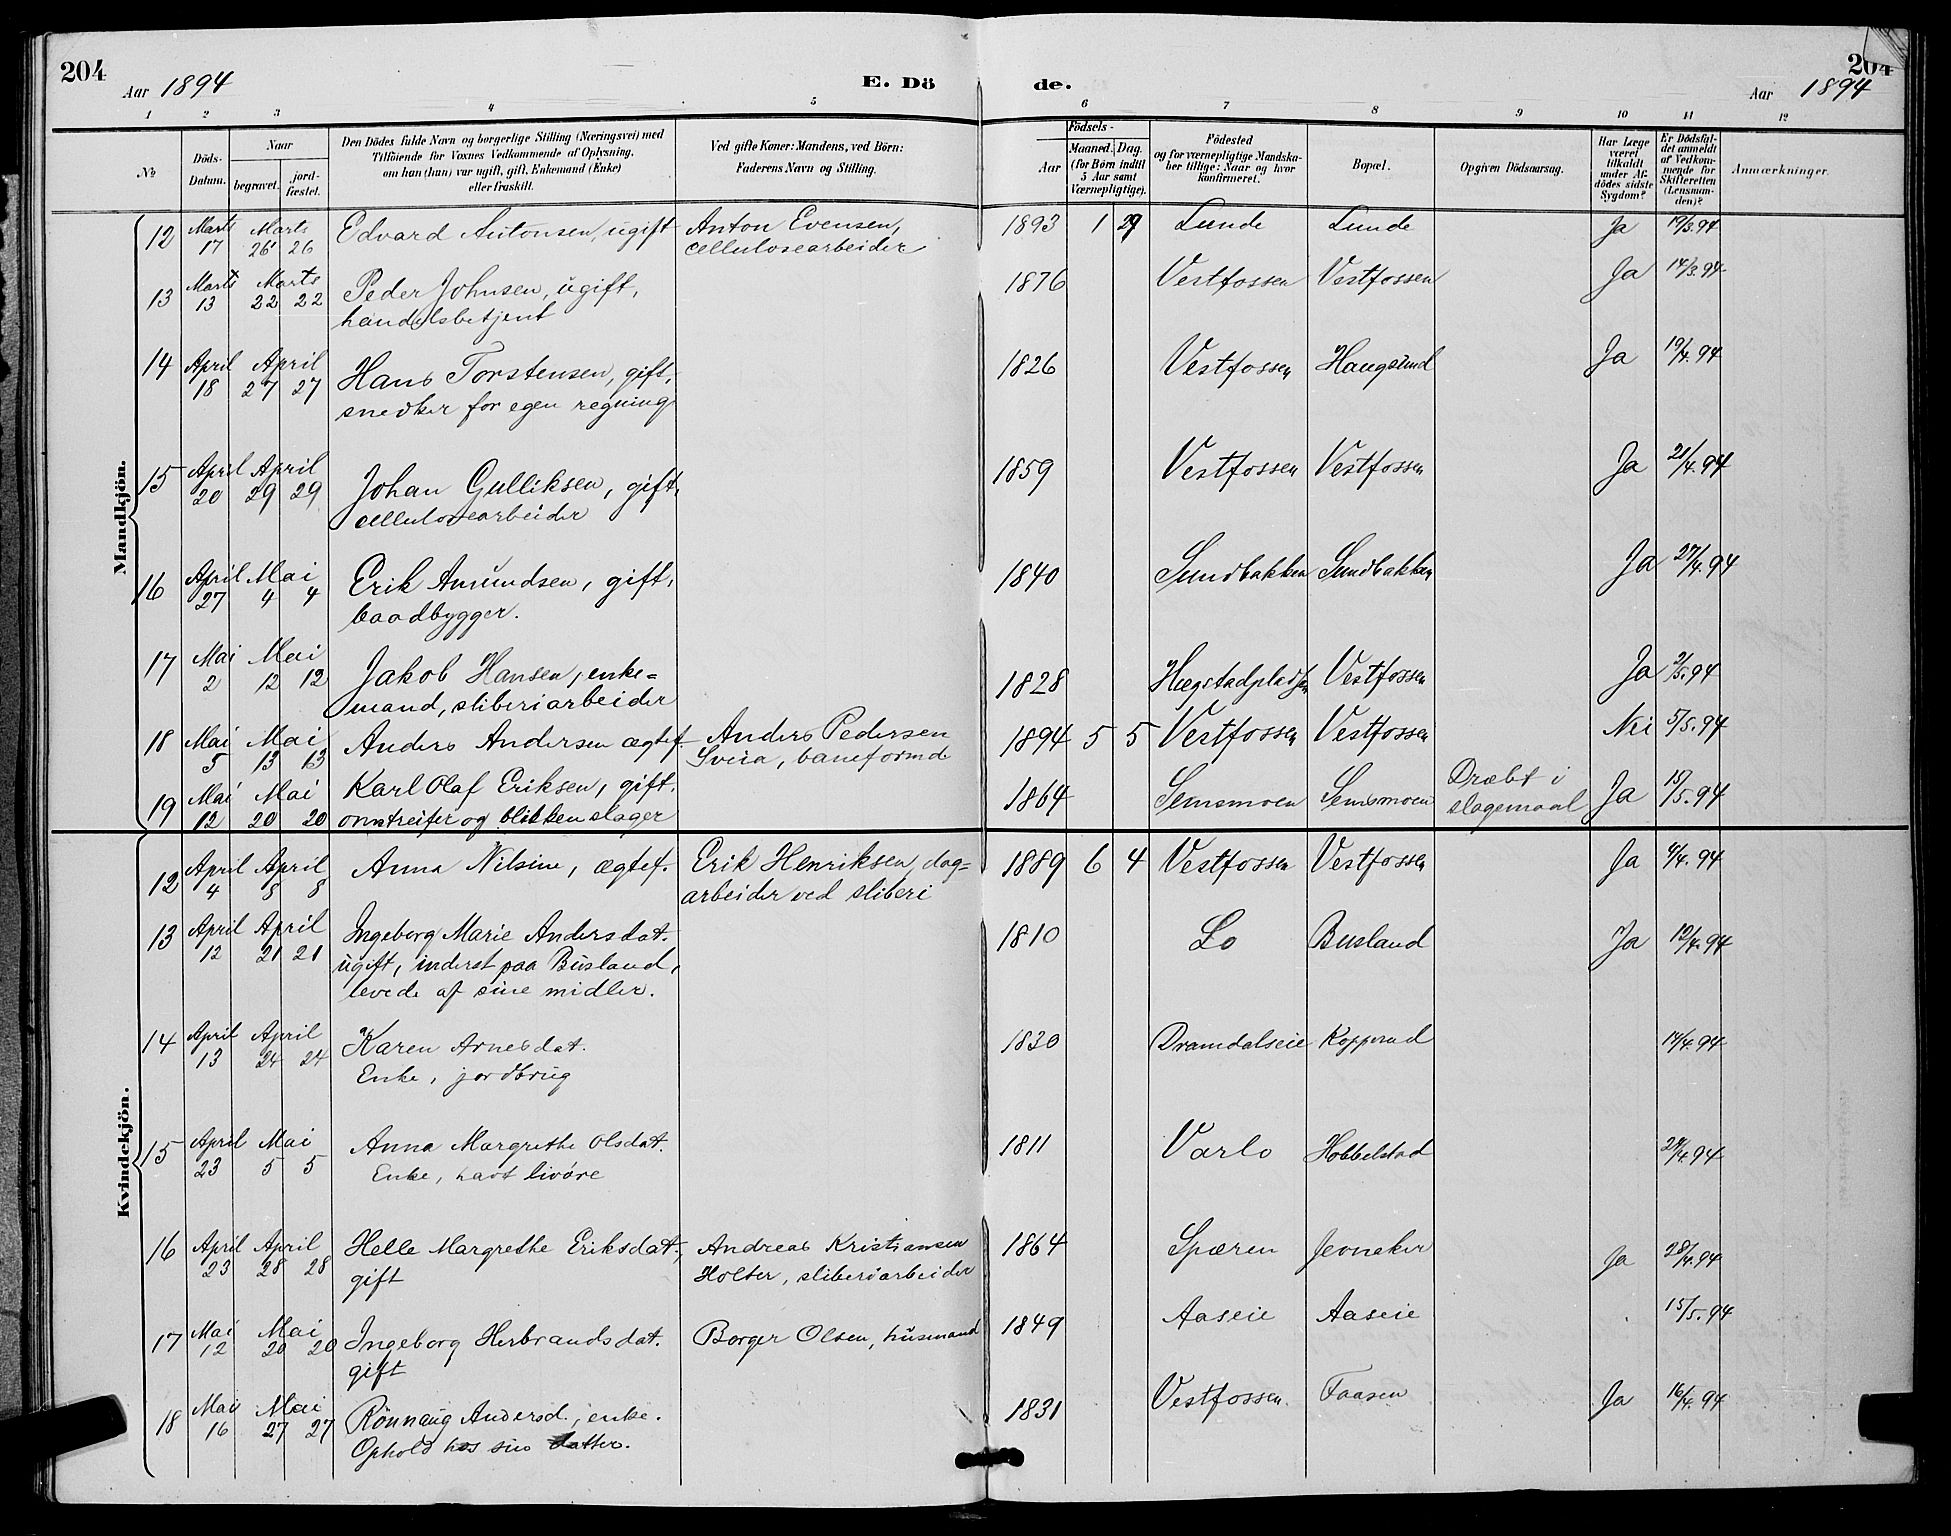 204
Aar 1894
E. Dö de.
204
Aar 1894
1 2 3 4 5 6 7 8 9 10 11 12
No
Döds-Datum.
Naar
begravet.
jordfæstet.
Den Dödes fulde Navn og borgerlige Stilling (Næringsvei) med
Tilföiende for Voxnes Vedkommende af Oplysning,
om han (hun) var ugift, gift, Enkemand (Enke)
eller fraskilt.
Ved gifte Koner: Mandens, ved Börn:
Faderens Navn og Stilling.
Födsels-
Aar
Maaned. Dag.
(for Börn indtil
5 Aar samt
Værnepligtige).
Födested
og for værnepligtige Mandska-
ber tillige: Naar og hvor
konfirmeret.
Bopæl.
Opgiven Dödsaarsag.
Har Læge
været
tilkaldt
under Af-
dödes sidste
Sygdom?
Er Dödsfal-
det anmeldt
af Vedkom-
mende for
Skifteretten
(Lensman-
den)?
Anmærkninger.
Mandkjön.
12 Marts 17 Marts 26 26 Edvard Antonsen, ugift Anton Evensen, 1893 1 29 Lunde Lunde Ja 19/3.94
cellulosearbeider
13 Marts 13 Marts 22 22 Peder Johnsen, ugift, 1876 Vestfossen Vestfossen Ja 14/3.94
handelsbetjent
14 April 18 April 27 27 Hans Torstensen, gift, 1826 Vestfossen Haugsund Ja 19/4.94
snedker for egen regning
15 April 20 April 29 29 Johan Gulliksen, gift, 1859 Vestfossen Vestfossen Ja 21/4.94
cellulosearbeider
16 April 27 Mai 4 4 Erik Amundsen, gift, 1840 Sundbakken Sundbakken Ja 27/4.94
baadbygger.
17 Mai 2 Mai 12 12 Jakob Hansen, enke= 1828 Hægstadpladsen Vestfossen Ja 2/5.94
mand, sliberiarbeider
18 Mai 5 Mai 13 13 Anders Andersen ægtef. Anders Pedersen 1894 5 5 Vestfossen Vestfossen Nei 5/5.94
Sveia, baneformd
19 Mai 12 Mai 20 20 Karl Olaf Eriksen, gift. 1864 Semsmoen Semsmoen Dræbt i Ja 15/5.94
omstreifer og blikkenslager slagsmaal
Kvindekjön.
12 April 4 April 8 8 Anna Nilsine, ægtef. Erik Henriksen, dag= 1889 6 4 Vestfossen Vestfossen Ja 4/4.94
arbeider ved sliberi
13 April 12 April 21 21 Ingeborg Marie Andersdat. 1810 Lo Busland Ja 12/4.94
ugift, inderst paa Busland,
levede af sine midler.
14 April 13 April 24 24 Karen Arnesdat. 1830 Dramdalseie Kopperud 14/4.94
Enke, jordbrug
15 April 23 Mai 5 5 Anna Margrethe Olsdat. 1811 Varlo Hobbelstad 24/4.94
Enke, havt livöre
16 April 23 April 28 28 Helle Margrethe Eriksdat., Andreas Kristiansen 1864 Spæren Jevneker Ja 28/4.94
gift Holter, sliberiarbeider
17 Mai 12 Mai 20 20 Ingeborg Herbrandsdat. Borger Olsen, husmand 1849 Aaseie Aaseie 15/5.94
gift
18 Mai 16 Mai 27 27 Rönnaug Andersd., enke. 1831 Vestfossen Faasen Ja 16/4.94
Ophold hos sin datter.